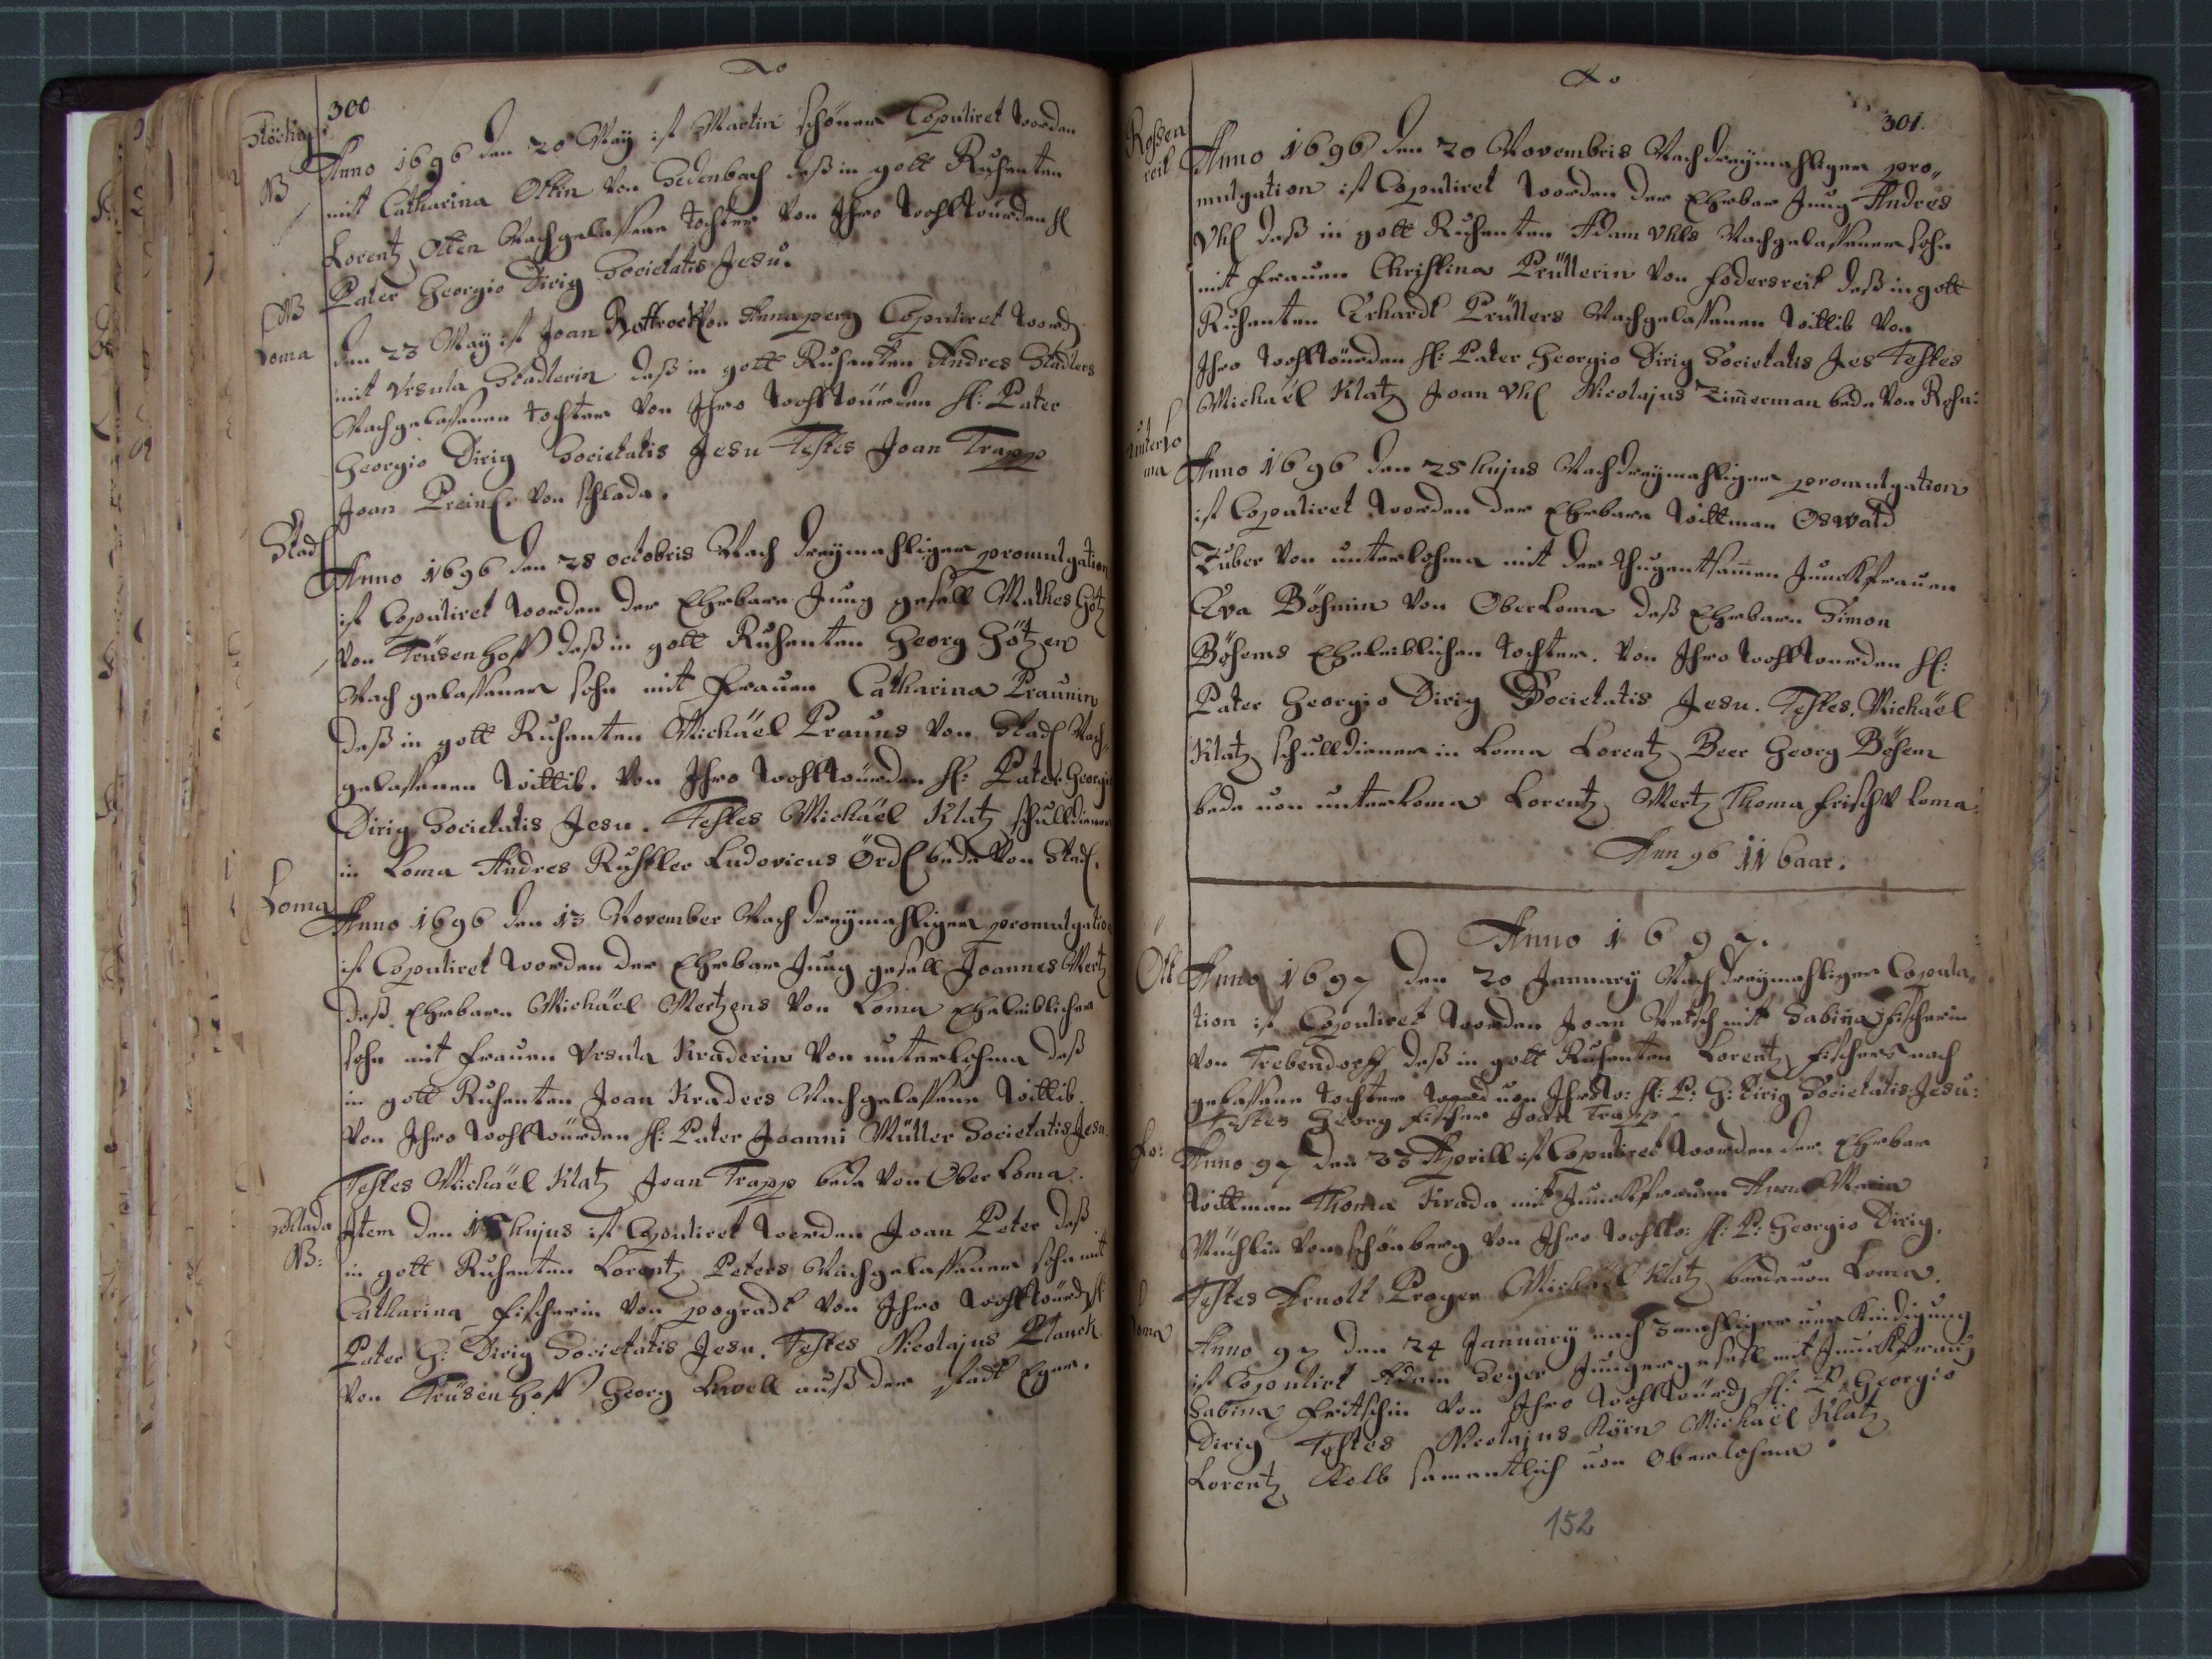 300
Stöcker
NB
Anno 1696 den 20 May ist Martin schöner Copuliret worden
mit Catharina Ottin von Sedenbach deß in gott Ruhenten
Lorentz Otten Nachgelassene tochter von Ihro wohlwürden H
Pater Georgio Dirig Societatis Jesu.
NB
Loma
den 23 May ist Joan Rottrock von Annaperg Copuliret word
mit Vrsula Stadlerin deß in gott Ruhenten Andres Stadlers
Nachgelassenen tochter von Ihro wohlwürden H: Pater
Georgio Dirig Societatis Jesu Testes Joan Trapp
Joan Preinl von schlada.
Stadl
Anno 1696 den 28 octobris Nach dreymahliger promulgation
ist Copuliret worden der Ehrbare Jung gesell Mathes Götz
von Trüsenhoff deß in gott Ruhenten Georg Götzen
Nach gelassener sohn mit Frauen Catharina Praunin
deß in gott Ruhenten Michäel Prauns von Stadl Nach„
gelassenen wittib. von Ihro wohlwürden H: Pater Georgio
Dirig Societatis Jesu. Testes Michäel Klatz schulldiener
in Loma Andres Rustler Ludovicus Ördl bede von Stadl.
Loma
Anno 1696 den 13 November Nach dreymahliger promulgation
ist Copuliret worden der Ehrbar Jung gesell Joannes Mertz
deß Ehrbarn Michäel Mertzens von Loma Eheleiblicher
sohn mit frauen Vrsula Kraderin von unterlohma deß
in gott Ruhenten Joan Kraders Nachgelassene wittib.
von Ihro wohlwürden H: Pater Joanni Müller Societatis Jesu.
Testes Michäel Klatz Joan Trapp bede von Ober Loma.
schlada
NB:
Item den 15 hujus ist Copuliret worden Joan Peter deß
in gott Ruhenten Lorentz Peters Nachgelassener sohn mit
Catharina Fischerin von pogradt von Ihro wohlwürd H
Pater G: Dirig Societatis Jesu. Testes Nicolajus Planck
von Trüsenhoff Georg Lewell auß der stadt Eger.
301.
Roßen
reit
Anno 1696 den 20 Novembris Nach dreymahliger pro„
mulgation ist Copuliret worden der Ehrbar Jung Andres
Vhl deß in gott Ruhenten Adam Vhls Nachgelassener sohn
mit frauen Christina Prüllerin von sodersreit deß in gott
Ruhenten Erhardt Prüllers Nachgelassenen wittib von
Ihro wohlwürden H: Pater Georgio Dirig Societatis Jes Testes
Michäel Klatz Joan Vhl Nicolajus Zimmerman bede von Roßn:
unterlo
ma
Anno 1696 den 25 hujus Nach dreymahliger promulgation
ist Copuliret worden der Ehrbare wittman Oswald
Zuber von unterlohma mit der thugentsamen Junckfrauen
Eva Böhmin von Oberloma deß Ehrbarn Simon
Böhems Eheleiblichen tochter. von Ihro wohlwürden H:
Pater Georgio Dirig Societatis Jesu. Testes. Michäel
Klatz schulldiener in Loma Lorentz Beer Georg Böhem
bede von unterloma Lorentz Mertz Thoma frisch v loma.
Ann 96 11 baar.
Anno 1697.
Ött
Anno 1697 den 20 January Nach dreymahliger Copula„
tion ist Copuliret worden Joan Netsch mit Sabina fischerin
von Trebendorff deß in gott Ruhenten Lorentz fischers nach
gelassene tochter von Ihro w: H: P: G: Dirig Societatis Jesu:
Testes Georg fischer Joan Trapp
Lo:
Anno 97 den 23 Aprill ist Copuliret worden der Ehrbar
wittman Thoma Krada mit Junckfrauen Anna Maria
Müchlin von schönberg von Ihro wohlw: H: P: Georgio Dirig.
Testes Arnolt Prager Michäel Klatz bede von Loma.
Loma
Anno 97 den 24 January nach 3 mahliger verkündigung
ist Copulirt Adam Zeger Junger gesell mit Junckfrau
Sabina Fritschin von Ihro wohlwürd H: P. Georgio
Dirig Testes Nicolajus Körn Michäel Klatz
Lorentz Kolb samentlich von Oberlohma.
152